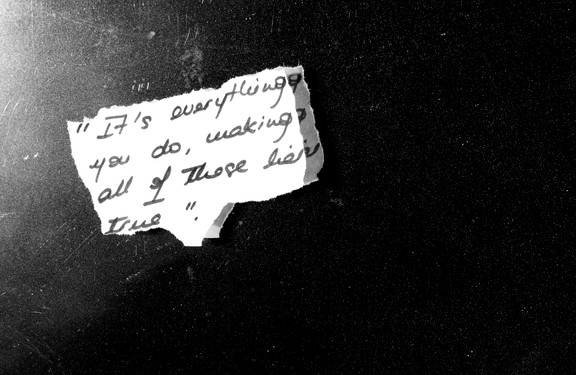 "It's everything
you do, making
all of those lies
true".